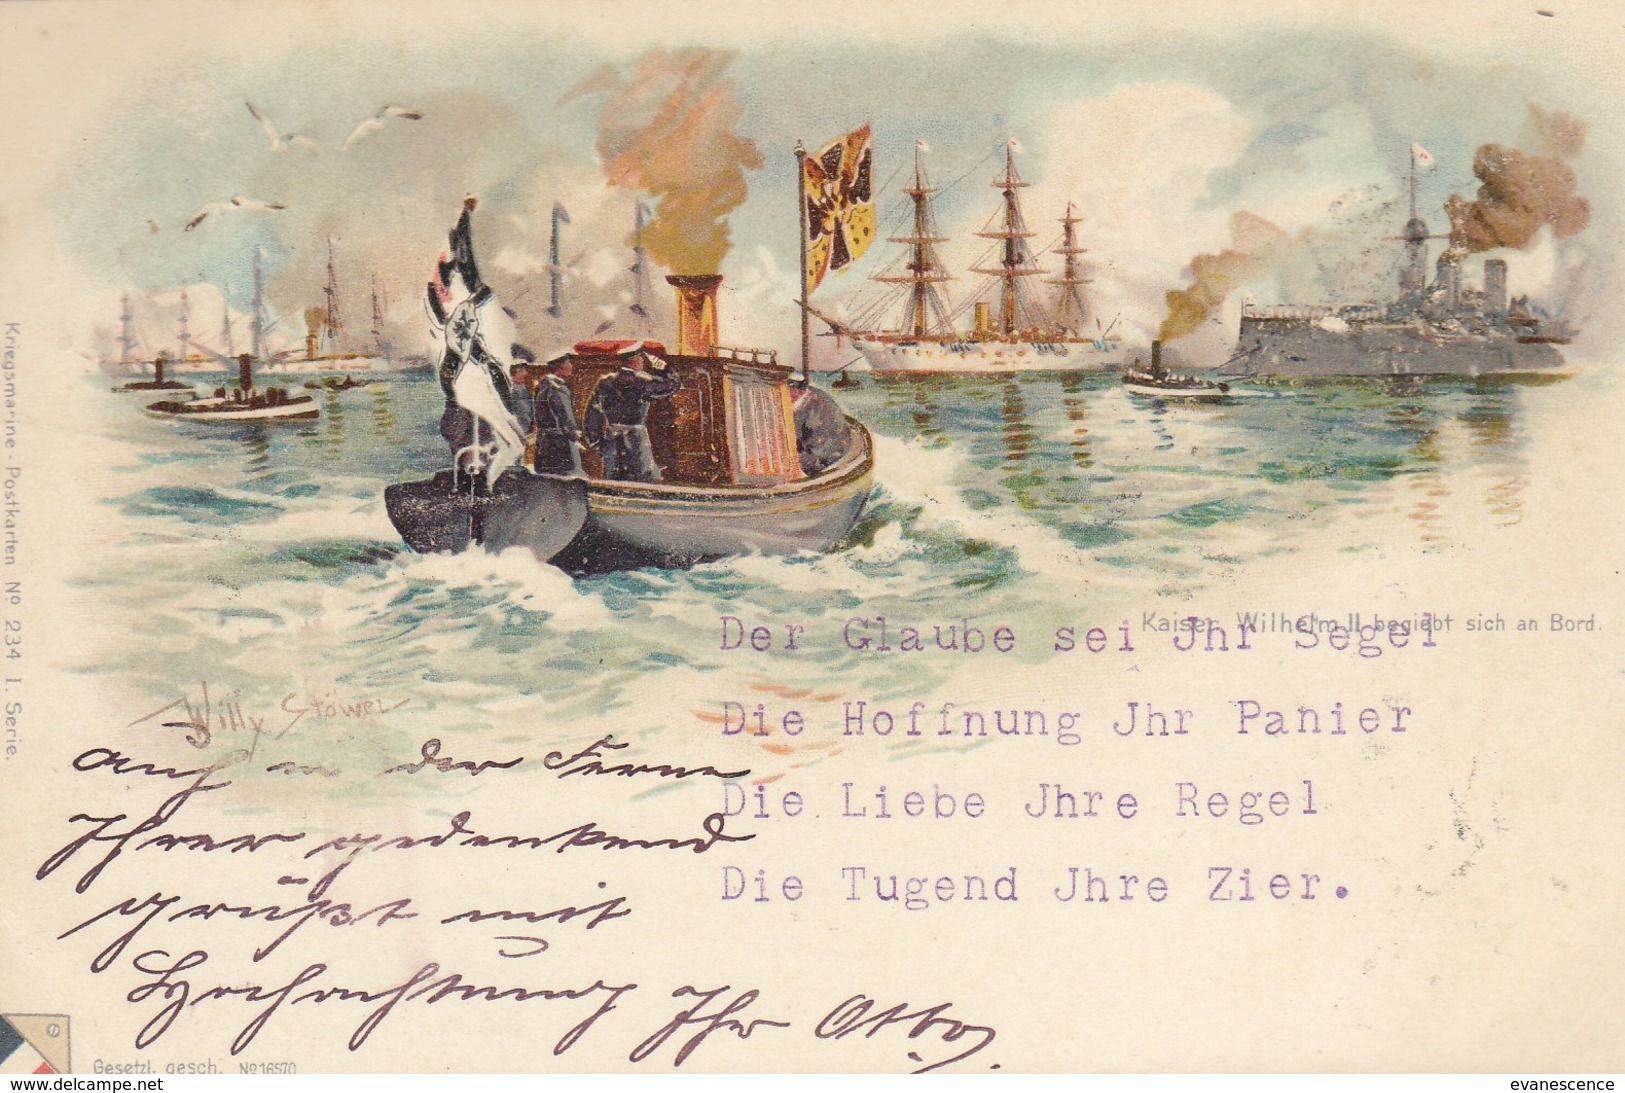 Kriegsmarine - Postkarten No 234 I. Serie.
Kaiser Wilhelm II begiebt sich an Bord.
Willy Stöwer
Der Glaube sei Jhr Segel
Die Hoffnung Jhr Panier
Die Liebe Jhre Regel
Die Tugend Jhre Zier.
Auch in der Ferne
Ihrer gedenkend
grüßt mit
Hochachtung Ihr Otto
Gesetzl. gesch. No 16570
www.delcampe.net
evanescence